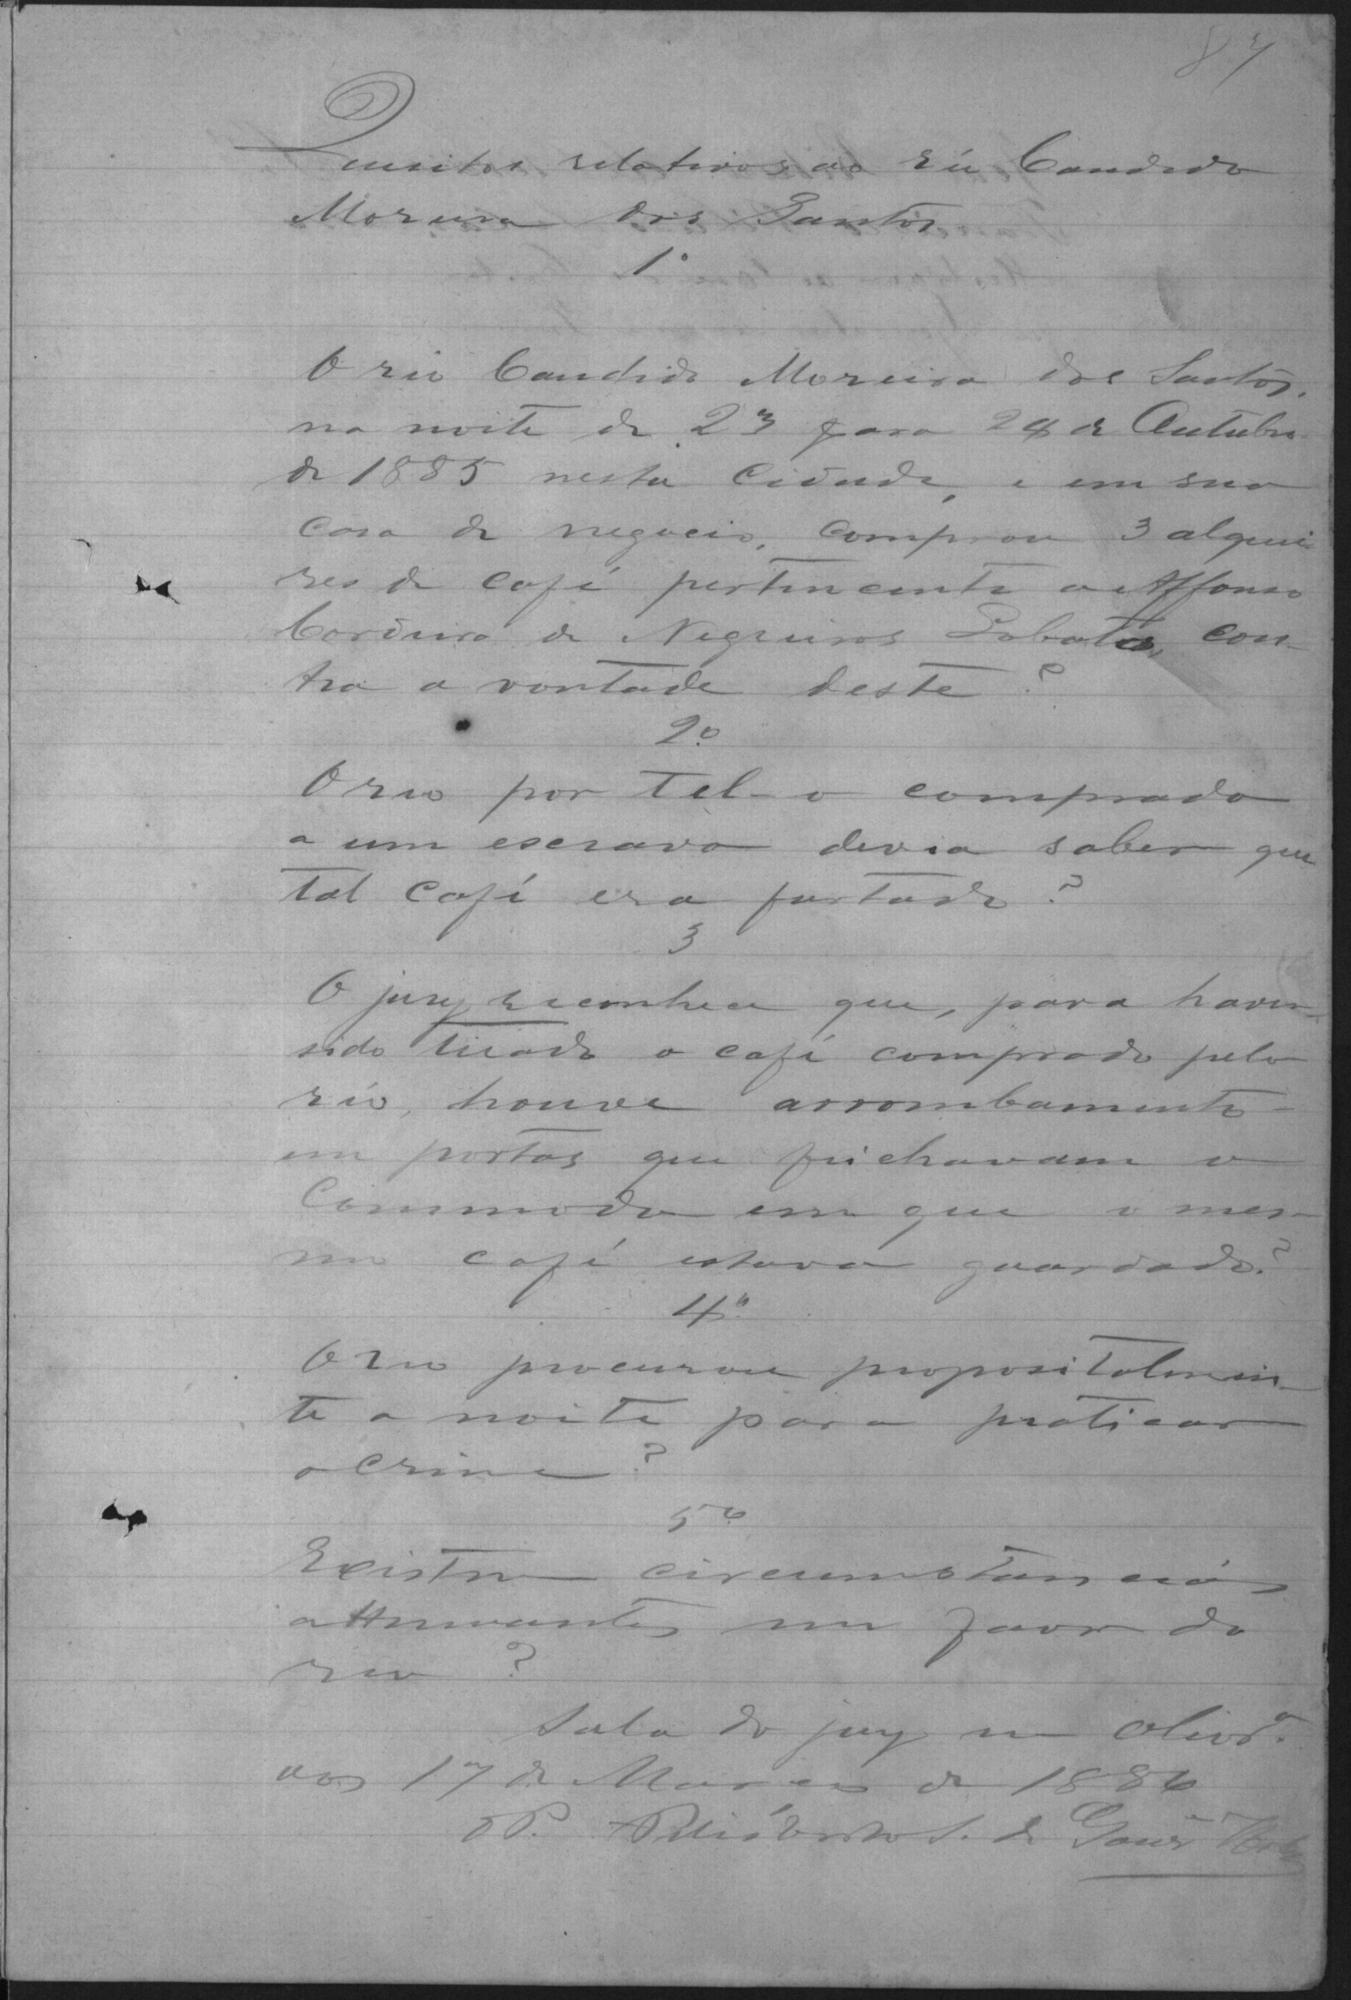 87
Quesitos relativos ao réu Candido
Moreira dos Santos
1º
O réo Candido Moreira dos Santos,
na noite de 23 para 24 de Outubro
de 1885 nesta Cidade, e em sua
casa de negocio, comprou 3 alquei
res de café pertincente a Affonso
Cordeiro de Negreiros Lobato, con-
tra a vontade deste?
2º
O reo por tel-o comprado
a um escravo devia saber que
tal café era furtado?
3
O jury reconhece que, para haver
sido tirado o café comprado pelo
réo, houve arrombamento
em portas que feichavam o
Commodo em que o mes-
mo café estava guardado?
4º
O reo procurou propositalmen-
te a noite para praticar
o crime?
5º
Existem circumstancias
attenuantes em favor do
reo?
Sala do jury em Olivrª
aos 17 de Março de 1886
P. de